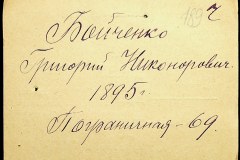 Бойченко
Григорий Никонорович.
1895г.
Пограничная-69.